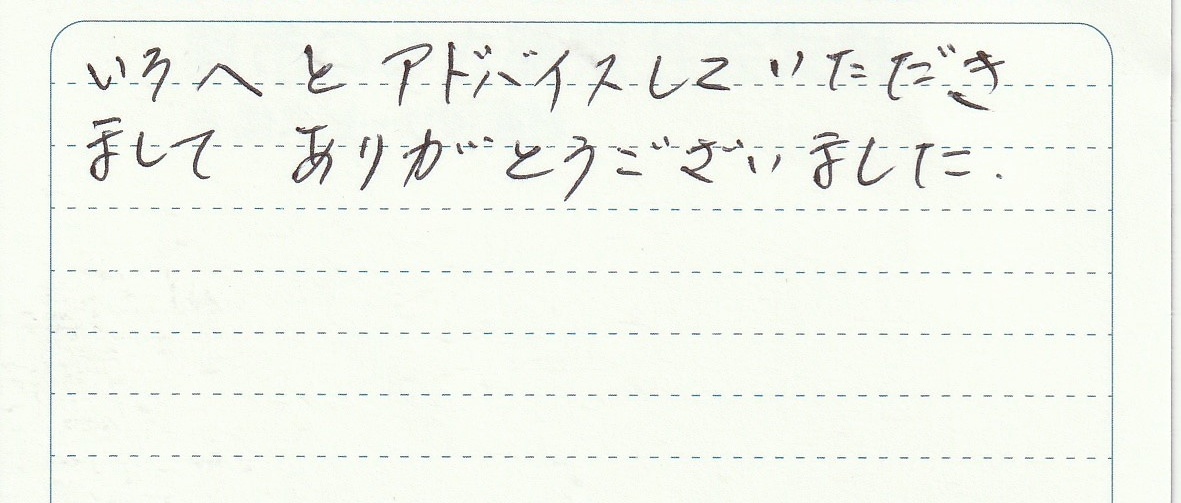 いろへとアドバイスしていただき
まして ありがとうございました.